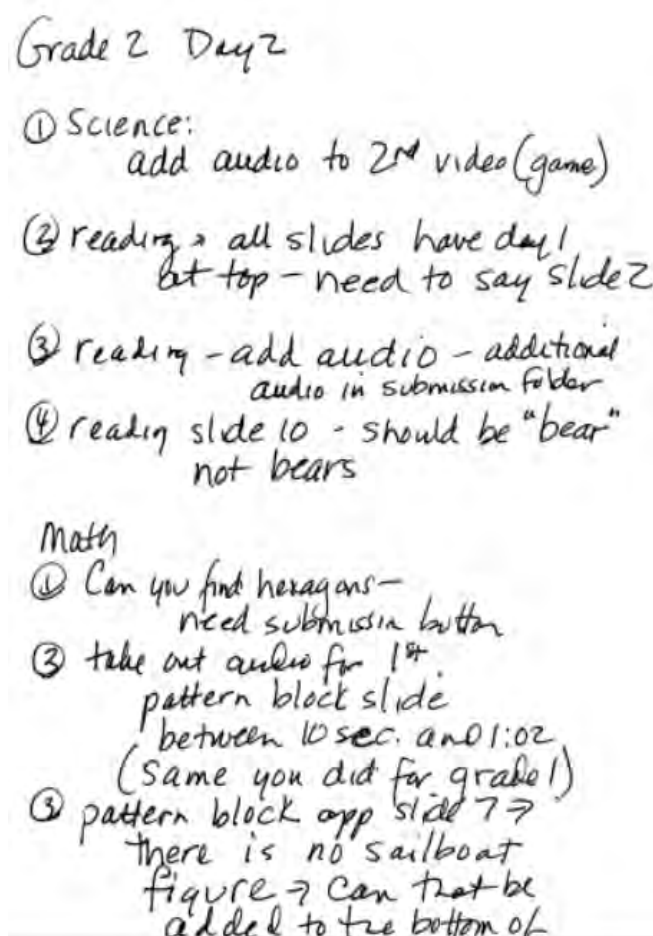 Grade 2 Day 2
① Science:
add audio to 2nd video (game)
② reading, all slides have day 1
at top - need to say slide 2
③ reading - add audio - additional
audio in submission folder
④ readin slide 10 - should be "bear"
not bears
Math
① Can you find hexagons -
need submission button
② take out audio for 1st
pattern block slide
between 10 sec. and 1:02
(Same you did for grade 1)
③ pattern block app slide 7 →
there is no sailboat
figure → can that be
added to the bottom of